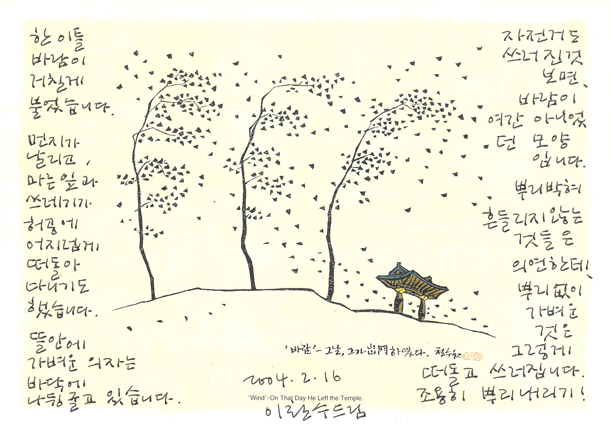 한 이틀
바람이
거칠게
불었습니다.
먼지가
날리고,
마른잎과
쓰레기가
허공에
어지럽게
떠돌아
다니기도
했습니다.
뜰안에
가벼운 의자는
바닥에
나뒹굴고 있습니다.
자전거도
쓰러진것
보면,
바람이
여간 아니었
던 모양
입니다.
뿌리박혀
흔들리지않는
것들은
의연한데,
뿌리없이
가벼운
것은
그렇게
떠돌고 쓰러집니다.
조용히 뿌리내리기!
'바람'- 그날, 그가 出門하였다. 철수
2004. 2. 16
'Wind'-On That Day He Left the Temple.
이철수드림